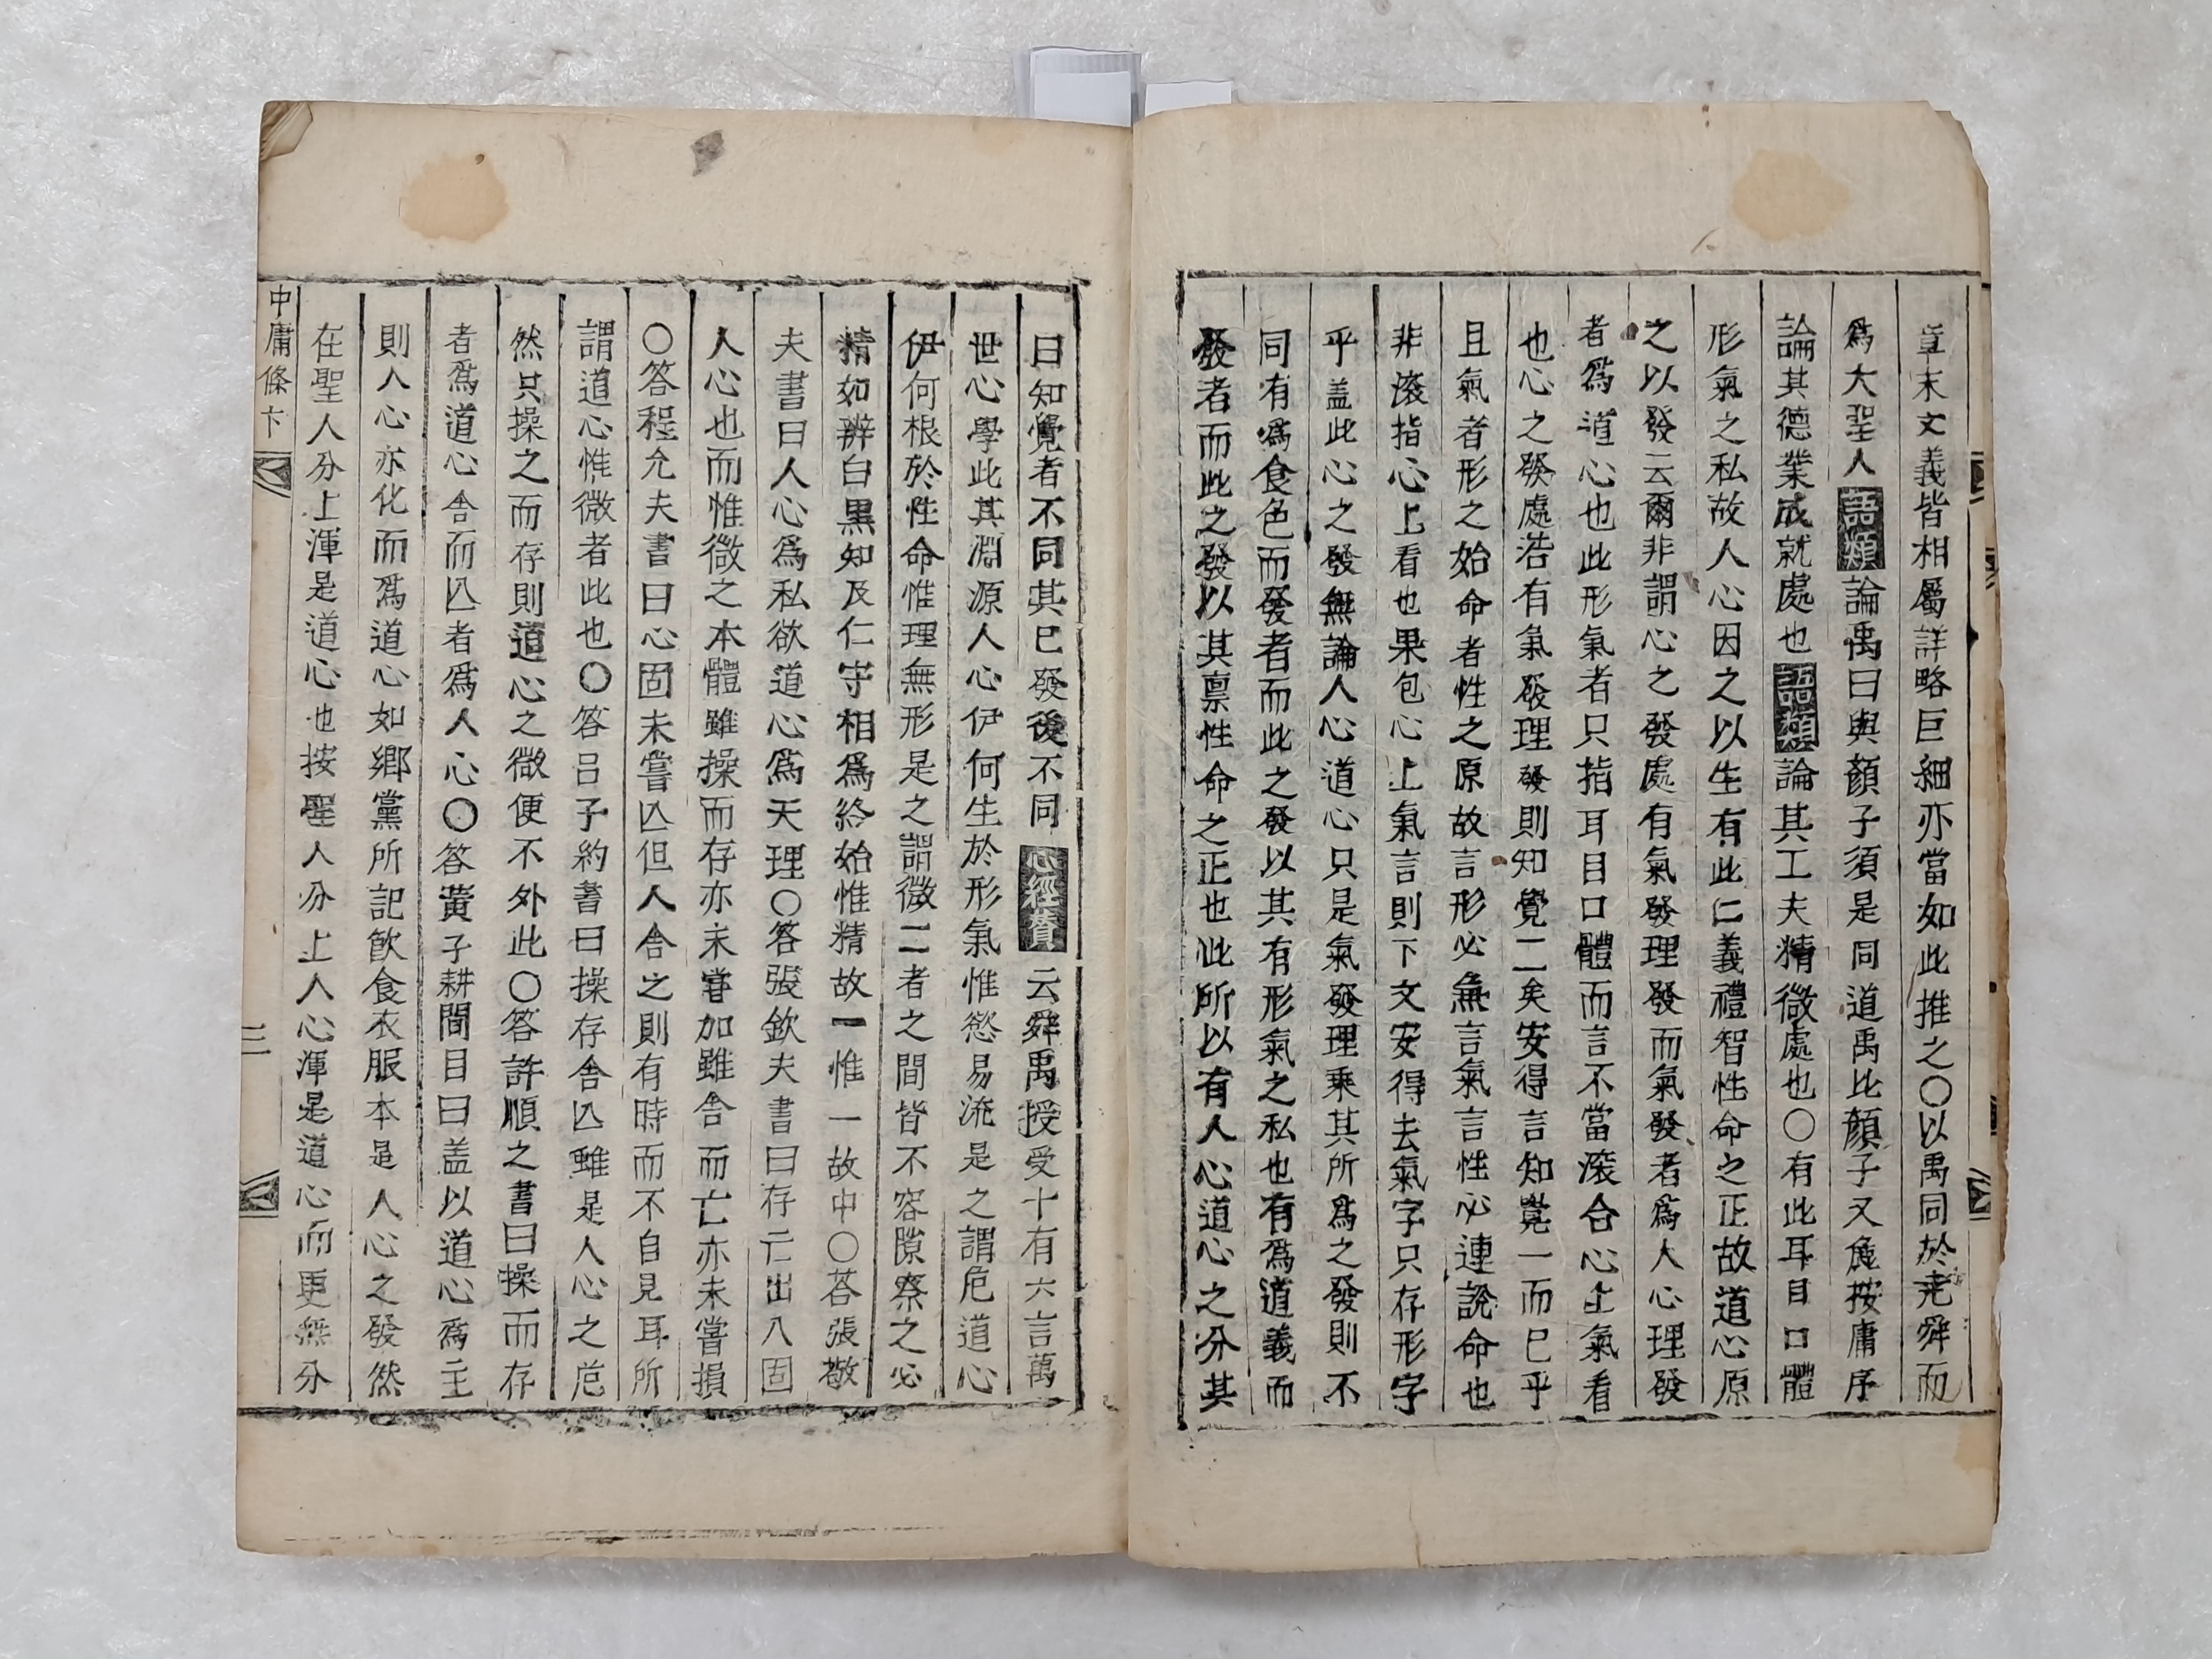 章末文義皆相屬詳略巨細亦當如此推之〇以禹同於堯舜而
爲大聖人語類論禹曰與顏子須是同道禹比顏子又麁按庸序
論其德業成就處也語類論其工夫精微處也〇有此耳目口體
形氣之私故人心因之以生有此仁義禮智性命之正故道心原
之以發云爾非謂心之發處有氣發理發而氣發者爲人心理發
者爲道心也此形氣者只指耳目口體而言不當滚合心上氣看
也心之發處浩有氣發理發則知覺二矣安得言知覺一而已乎
且氣者形之始命者性之原故言形必兼言氣言性必連說命也
非滚指心上看也果包心上氣言則下文安得去氣字只存形字
乎盖此心之發無論人心道心只是氣發理乘其所爲之發則不
同有爲食色而發者而此之發以其有形氣之私也有爲道義而
發者而此之發以其禀性命之正也此所以有人心道心之分其
曰知覺者不同其已發後不同心經贊云舜禹授受十有六言萬
世心學此其淵源人心伊何生於形氣惟慾易流是之謂危道心
伊何根於性命惟理無形是之謂微二者之間皆不容隙察之必
精如辨白黑知及仁守相爲終始惟精故一惟一故中〇荅張敬
夫書曰人心爲私欲道心爲天理〇答張欽夫書曰存亡出入固
人心也而惟微之本體雖操而存亦未嘗加雖舍而亡亦未嘗損
〇答程允夫書曰心固未嘗亾但人舍之則有時而不自見耳所
謂道心惟微者此也〇答呂子約書曰操存舍亾雖是人心之危
然只操之而存則道心之微便不外此〇答許順之書曰操而存
者爲道心舍而亾者爲人心〇答黄子耕問目曰盖以道心爲主
則人心亦化而爲道心如鄉黨所記飮食衣服本是人心之發然
在聖人分上渾是道心也按聖人分上人心渾是道心而更無分
中庸條卞
三